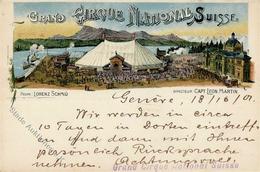 GRAND CIRQUE NATIONAL SUISSE.
PROPR. LORENZ SCHMID
DIRECTEUR CAPT. LEON. MARTIN.
Genève, 18/6/01.
Wir werden in circa
10 Tagen in Dorten eintreffen
und dann mit Ihnen
persönlich Rücksprache
nehmen. Achtungsvoll
Grand Cirque National Suisse